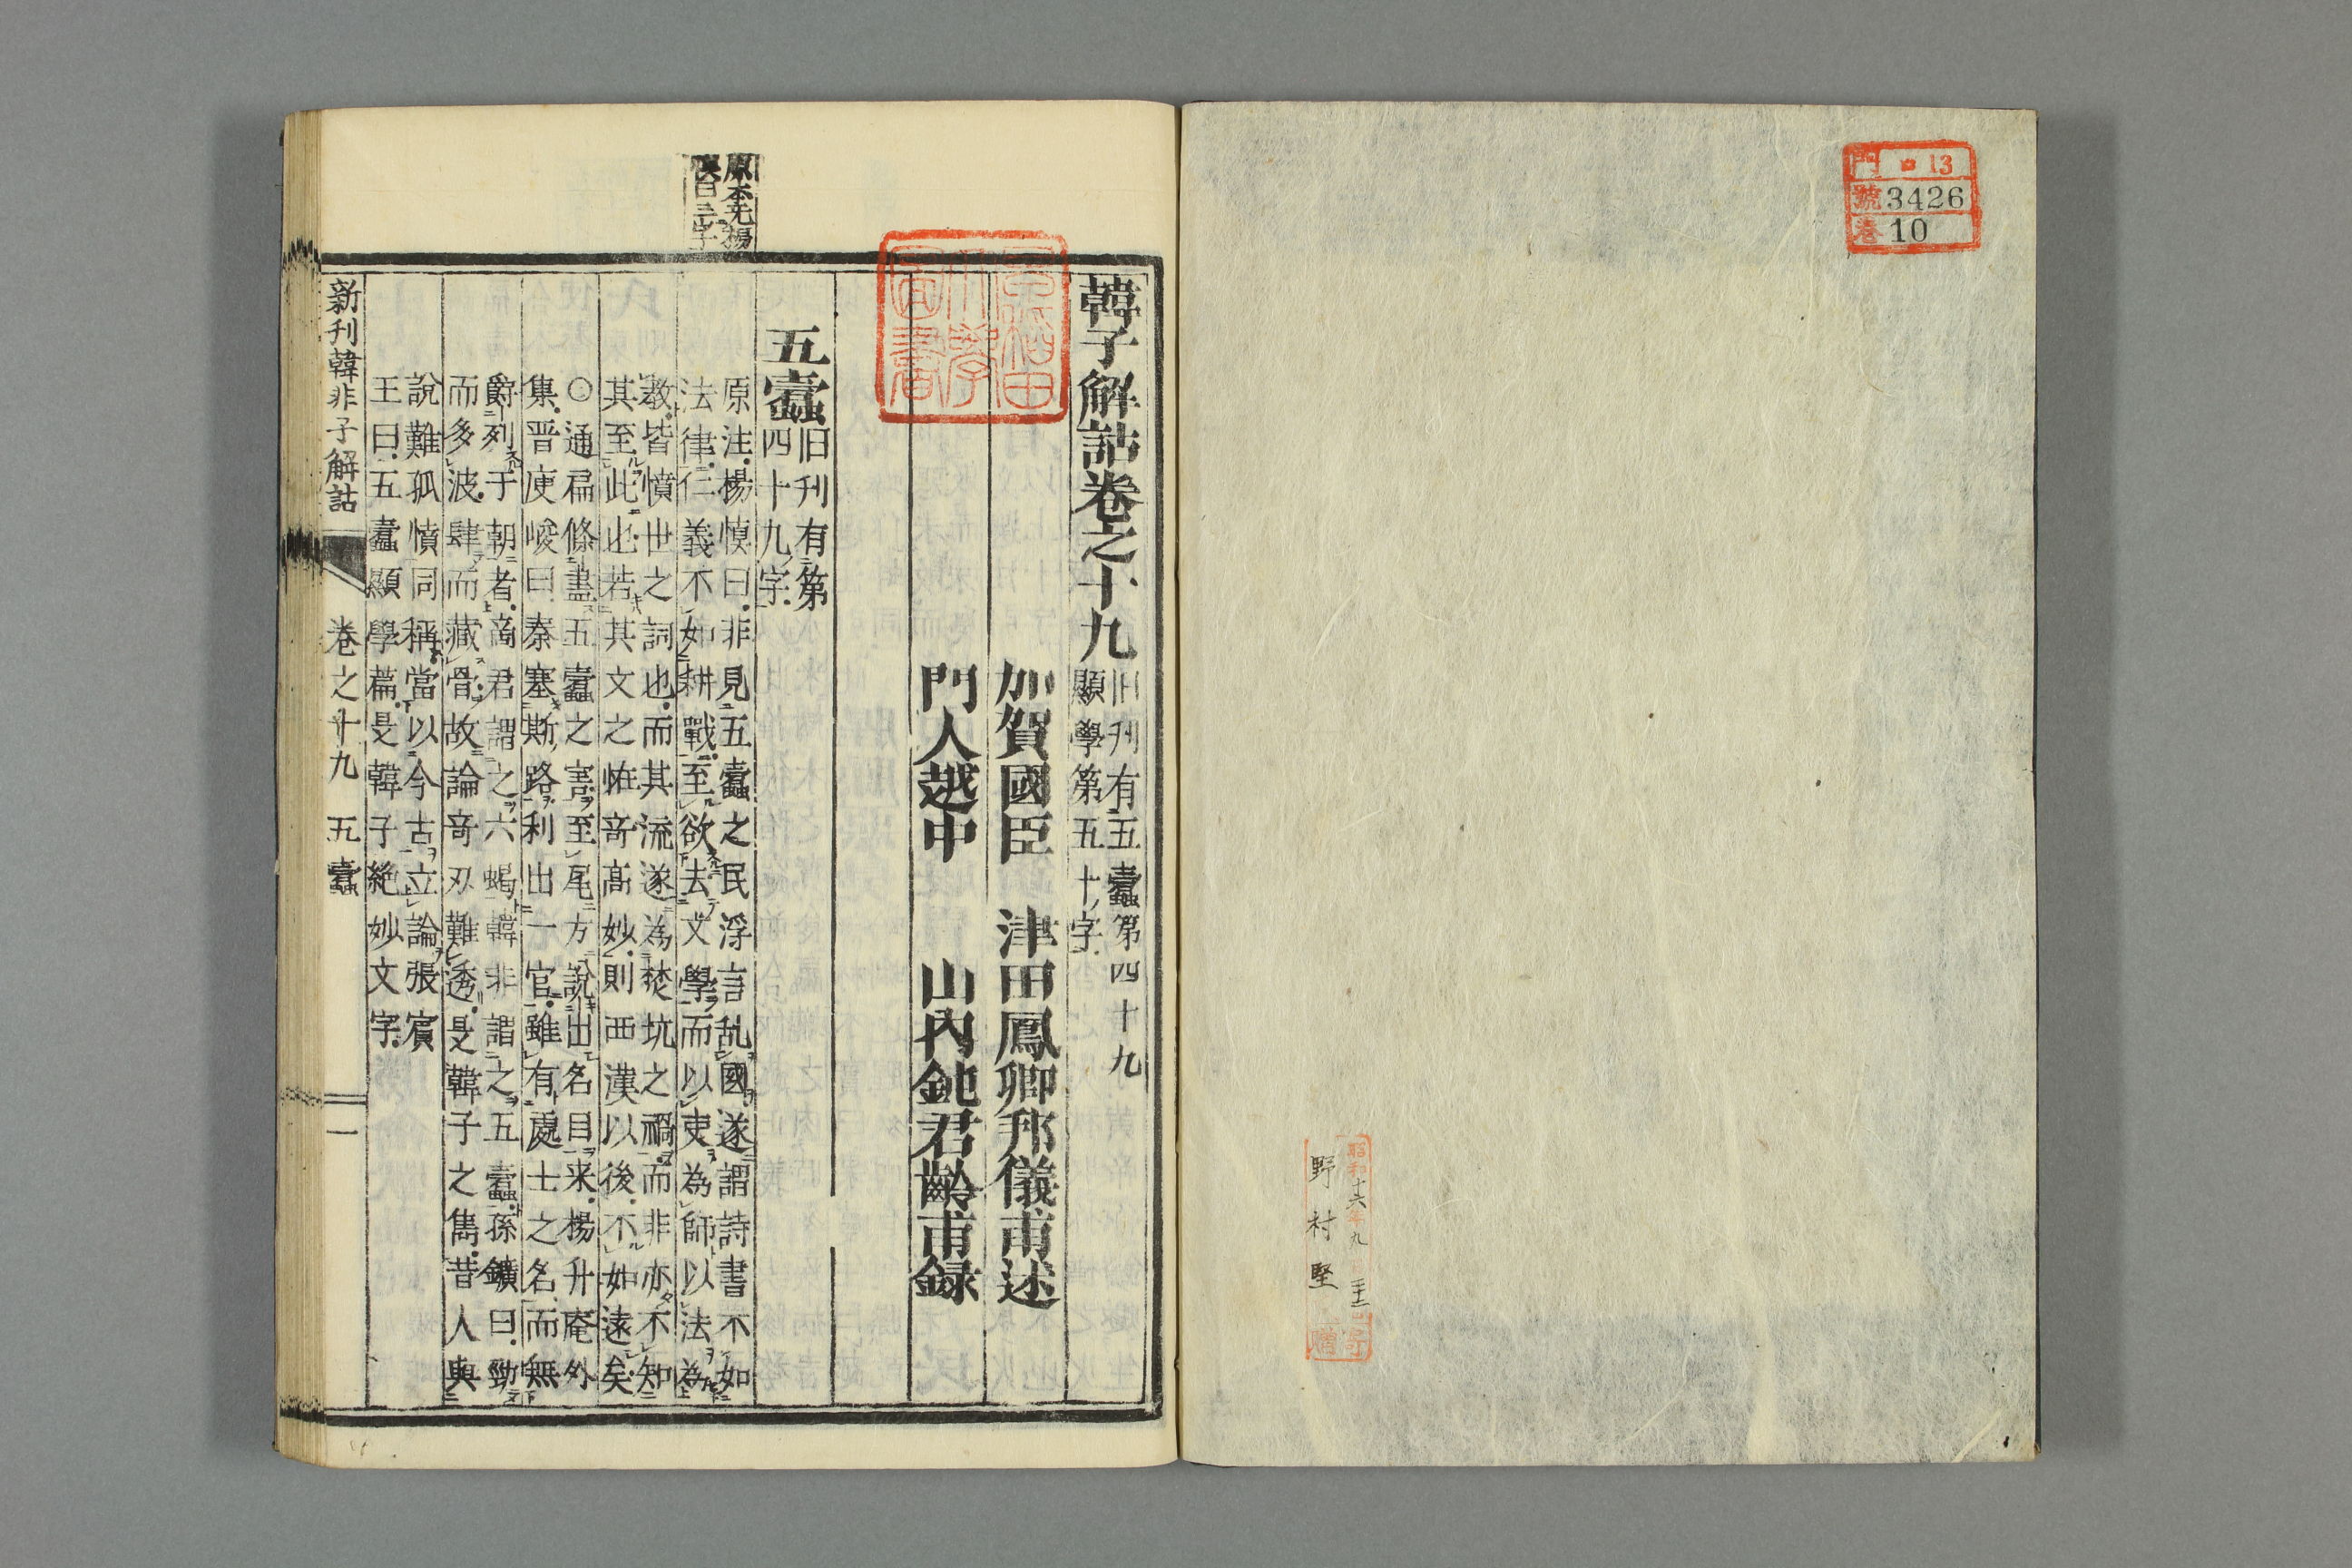 門 ロ 13
號 3426
巻 10
昭和十六年九月十五日
野村堅
寄贈
早稲田
大学
図書
原本无楊
慎曰三字
韓子解詁卷之十九
旧刋有五蠧第四十九
顯學第五十ノ字
加賀國臣 津田鳳卿邦儀甫述
門人越中 山內鈍君齡甫録
五蠧
旧刋有第
四十九ノ字
原注楊慎曰非見五蠧之民浮言乱國遂謂詩書不如
法律仁義不如耕戰至欲去文學而以吏為師以法為
教皆憤世之詞也而其流遂為焚坑之禍而非亦不知
其至此也若其文之恠竒髙妙則西漢以後不如遠矣
○通扁條盡五蠧之害至尾方說出名目来楊升庵外
集晋庾峻曰秦塞斯路利出一官雖有處士之名而無
爵列于朝者商君謂之六蝎韓非謂之五蠧孫鑛曰勁
而多波肆而藏骨故論竒刃難透是韓子之雋昔人與
說難孤憤同稱當以今古立論張賓
王曰五蠧顯學篇是韓子絶妙文字
新刋韓非子解詁 卷之十九 五蠧 一